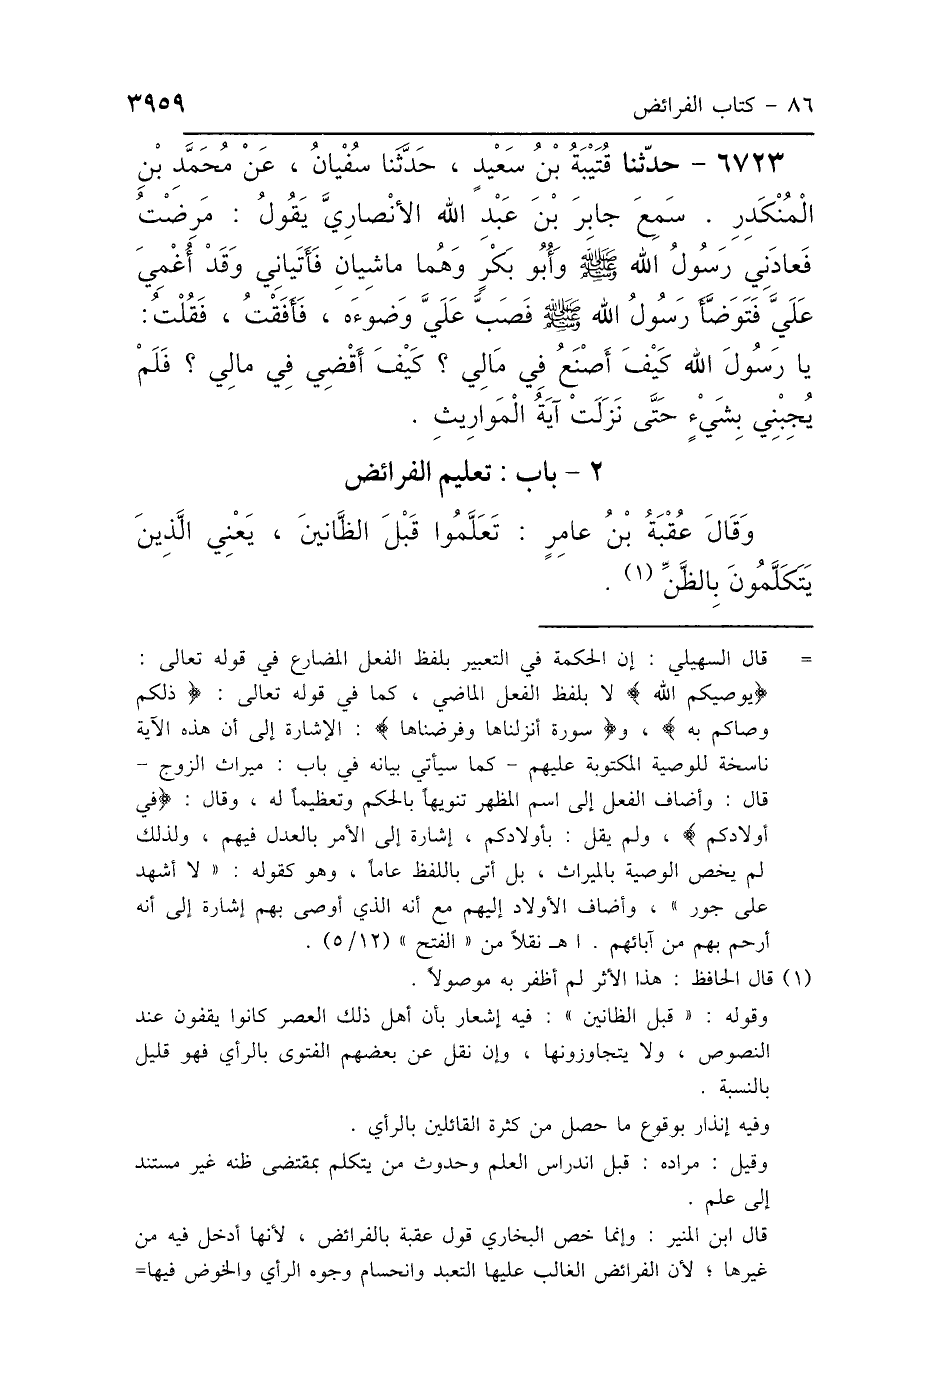 ٨٦ - كتاب الفرائض ٣٩٥٩
٦٧٢٣ - حدّثنا قُتَيْبَةُ بْنُ سَعِيدٍ ، حَدَّثَنا سُفْيانُ ، عَنْ مُحَمَّدِ بْنِ
الْمُنْكَدِرِ . سَمِعَ جابِرَ بْنَ عَبْدِ الله الأنْصارِيَّ يَقُولُ : مَرِضْتُ
فَعادَنِي رَسُولُ الله ﷺ وأَبُو بَكْرٍ وَهُما ماشِيانِ فَأَتَيانِي وَقَدْ أُغْمِيَ
عَلَيَّ فَتَوَضَّأَ رَسُولُ الله ﷺ فَصَبَّ عَلَيَّ وَضُوءَه ، فَأَفَقْتُ ، فَقُلْتُ:
يا رَسُولَ الله كَيْفَ أَصْنَعُ فِي مَالِي ؟ كَيْفَ أَقْضِي فِي مالِي ؟ فَلَمْ
يُجِبْنِي بِشَيْءٍ حَتَّى نَزَلَتْ آيَةُ الْمَوارِيثِ .
٢ - باب : تعليم الفرائض
وَقَالَ عُقْبَةُ بْنُ عامِرٍ : تَعَلَّمُوا قَبْلَ الظَّانِّينَ ، يَعْنِي الَّذِينَ
يَتَكَلَّمُونَ بِالظَّنِّ (١) .
= قال السهيلي : إن الحكمة في التعبير بلفظ الفعل المضارع في قوله تعالى :
﴿يوصيكم الله ﴾ لا بلفظ الفعل الماضي ، كما في قوله تعالى : ﴿ ذلكم
وصاكم به ﴾ ، و﴿ سورة أنزلناها وفرضناها ﴾ : الإشارة إلى أن هذه الآية
ناسخة للوصية المكتوبة عليهم - كما سيأتي بيانه في باب : ميراث الزوج -
قال : وأضاف الفعل إلى اسم المظهر تنويهاً بالحكم وتعظيماً له ، وقال : ﴿في
أولادكم ﴾ ، ولم يقل : بأولادكم ، إشارة إلى الأمر بالعدل فيهم ، ولذلك
لم يخص الوصية بالميراث ، بل أتى باللفظ عاماً ، وهو كقوله : « لا أشهد
على جور » ، وأضاف الأولاد إليهم مع أنه الذي أوصى بهم إشارة إلى أنه
أرحم بهم من آبائهم . ا هـ نقلاً من « الفتح » (٥/١٢) .
(١) قال الحافظ : هذا الأثر لم أظفر به موصولاً .
وقوله : « قبل الظانين » : فيه إشعار بأن أهل ذلك العصر كانوا يقفون عند
النصوص ، ولا يتجاوزونها ، وإن نقل عن بعضهم الفتوى بالرأي فهو قليل
بالنسبة .
وفيه إنذار بوقوع ما حصل من كثرة القائلين بالرأي .
وقيل : مراده : قبل اندراس العلم وحدوث من يتكلم بمقتضى ظنه غير مستند
إلى علم .
قال ابن المنير : وإنما خص البخاري قول عقبة بالفرائض ، لأنها أدخل فيه من
غيرها ؛ لأن الفرائض الغالب عليها التعبد وانحسام وجوه الرأي والخوض فيها=